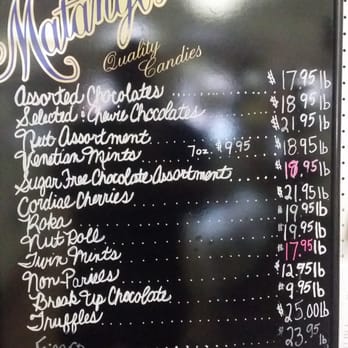 Quality
Candies
Assorted Chocolates $17.95 lb
Selected & Chewie Chocolates $18.95 lb
Nut Assortment $21.95 lb
Venetian Mints 7oz. $9.95 $18.95 lb
Sugar Free Chocolate Assortment $18.95 lb
Cordial Cherries $21.95 lb
Roka $19.95 lb
Nut Roll $19.95 lb
Twin Mints $17.95 lb
Non-Pariels $12.95 lb
Break Up Chocolate $9.95 lb
Truffles $25.00 lb
$23.95 lb